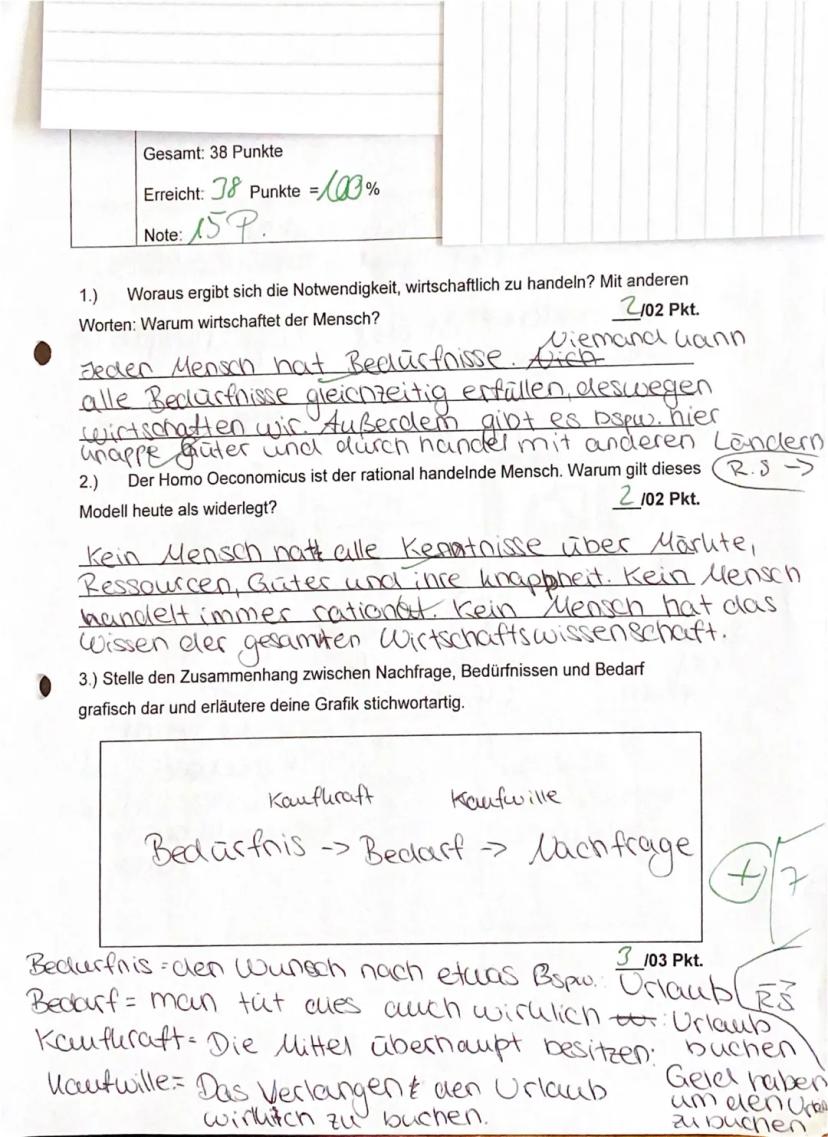 Gesamt: 38 Punkte
Erreicht: 38 Punkte = 100%
Note: 15 P.
1.) Woraus ergibt sich die Notwendigkeit, wirtschaftlich zu handeln? Mit anderen
Worten: Warum wirtschaftet der Mensch? 2/02 Pkt.
Jeder Mensch hat Bedürfnisse. Niemand kann
alle Bedürfnisse gleichzeitig erfüllen, deswegen
wirtschaften wir. Außerdem gibt es bspw. hier
knappe Güter und durch handel mit anderen Ländern
2.) Der Homo Oeconomicus ist der rational handelnde Mensch. Warum gilt dieses R.S →
Modell heute als widerlegt? 2/02 Pkt.
Kein Mensch hat alle Kenntnisse über Märkte,
Ressourcen, Güter und ihre knappheit. Kein Mensch
handelt immer rational. Kein Mensch hat das
Wissen der gesamten Wirtschaftswissenschaft.
3.) Stelle den Zusammenhang zwischen Nachfrage, Bedürfnissen und Bedarf
grafisch dar und erläutere deine Grafik stichwortartig.
Kaufkraft Kaufwille
Bedürfnis -> Bedarf -> Nachfrage
+ 7
3/03 Pkt.
Bedürfnis = den Wunsch nach etwas Bspw.: Urlaub
Bedarf = man tut dies auch wirklich : Urlaub buchen
Kaufkraft = Die Mittel überhaupt besitzen: Geld haben um den Urlaub zu buchen
Kaufwille = Das Verlangen den Urlaub
wirklich zu buchen.